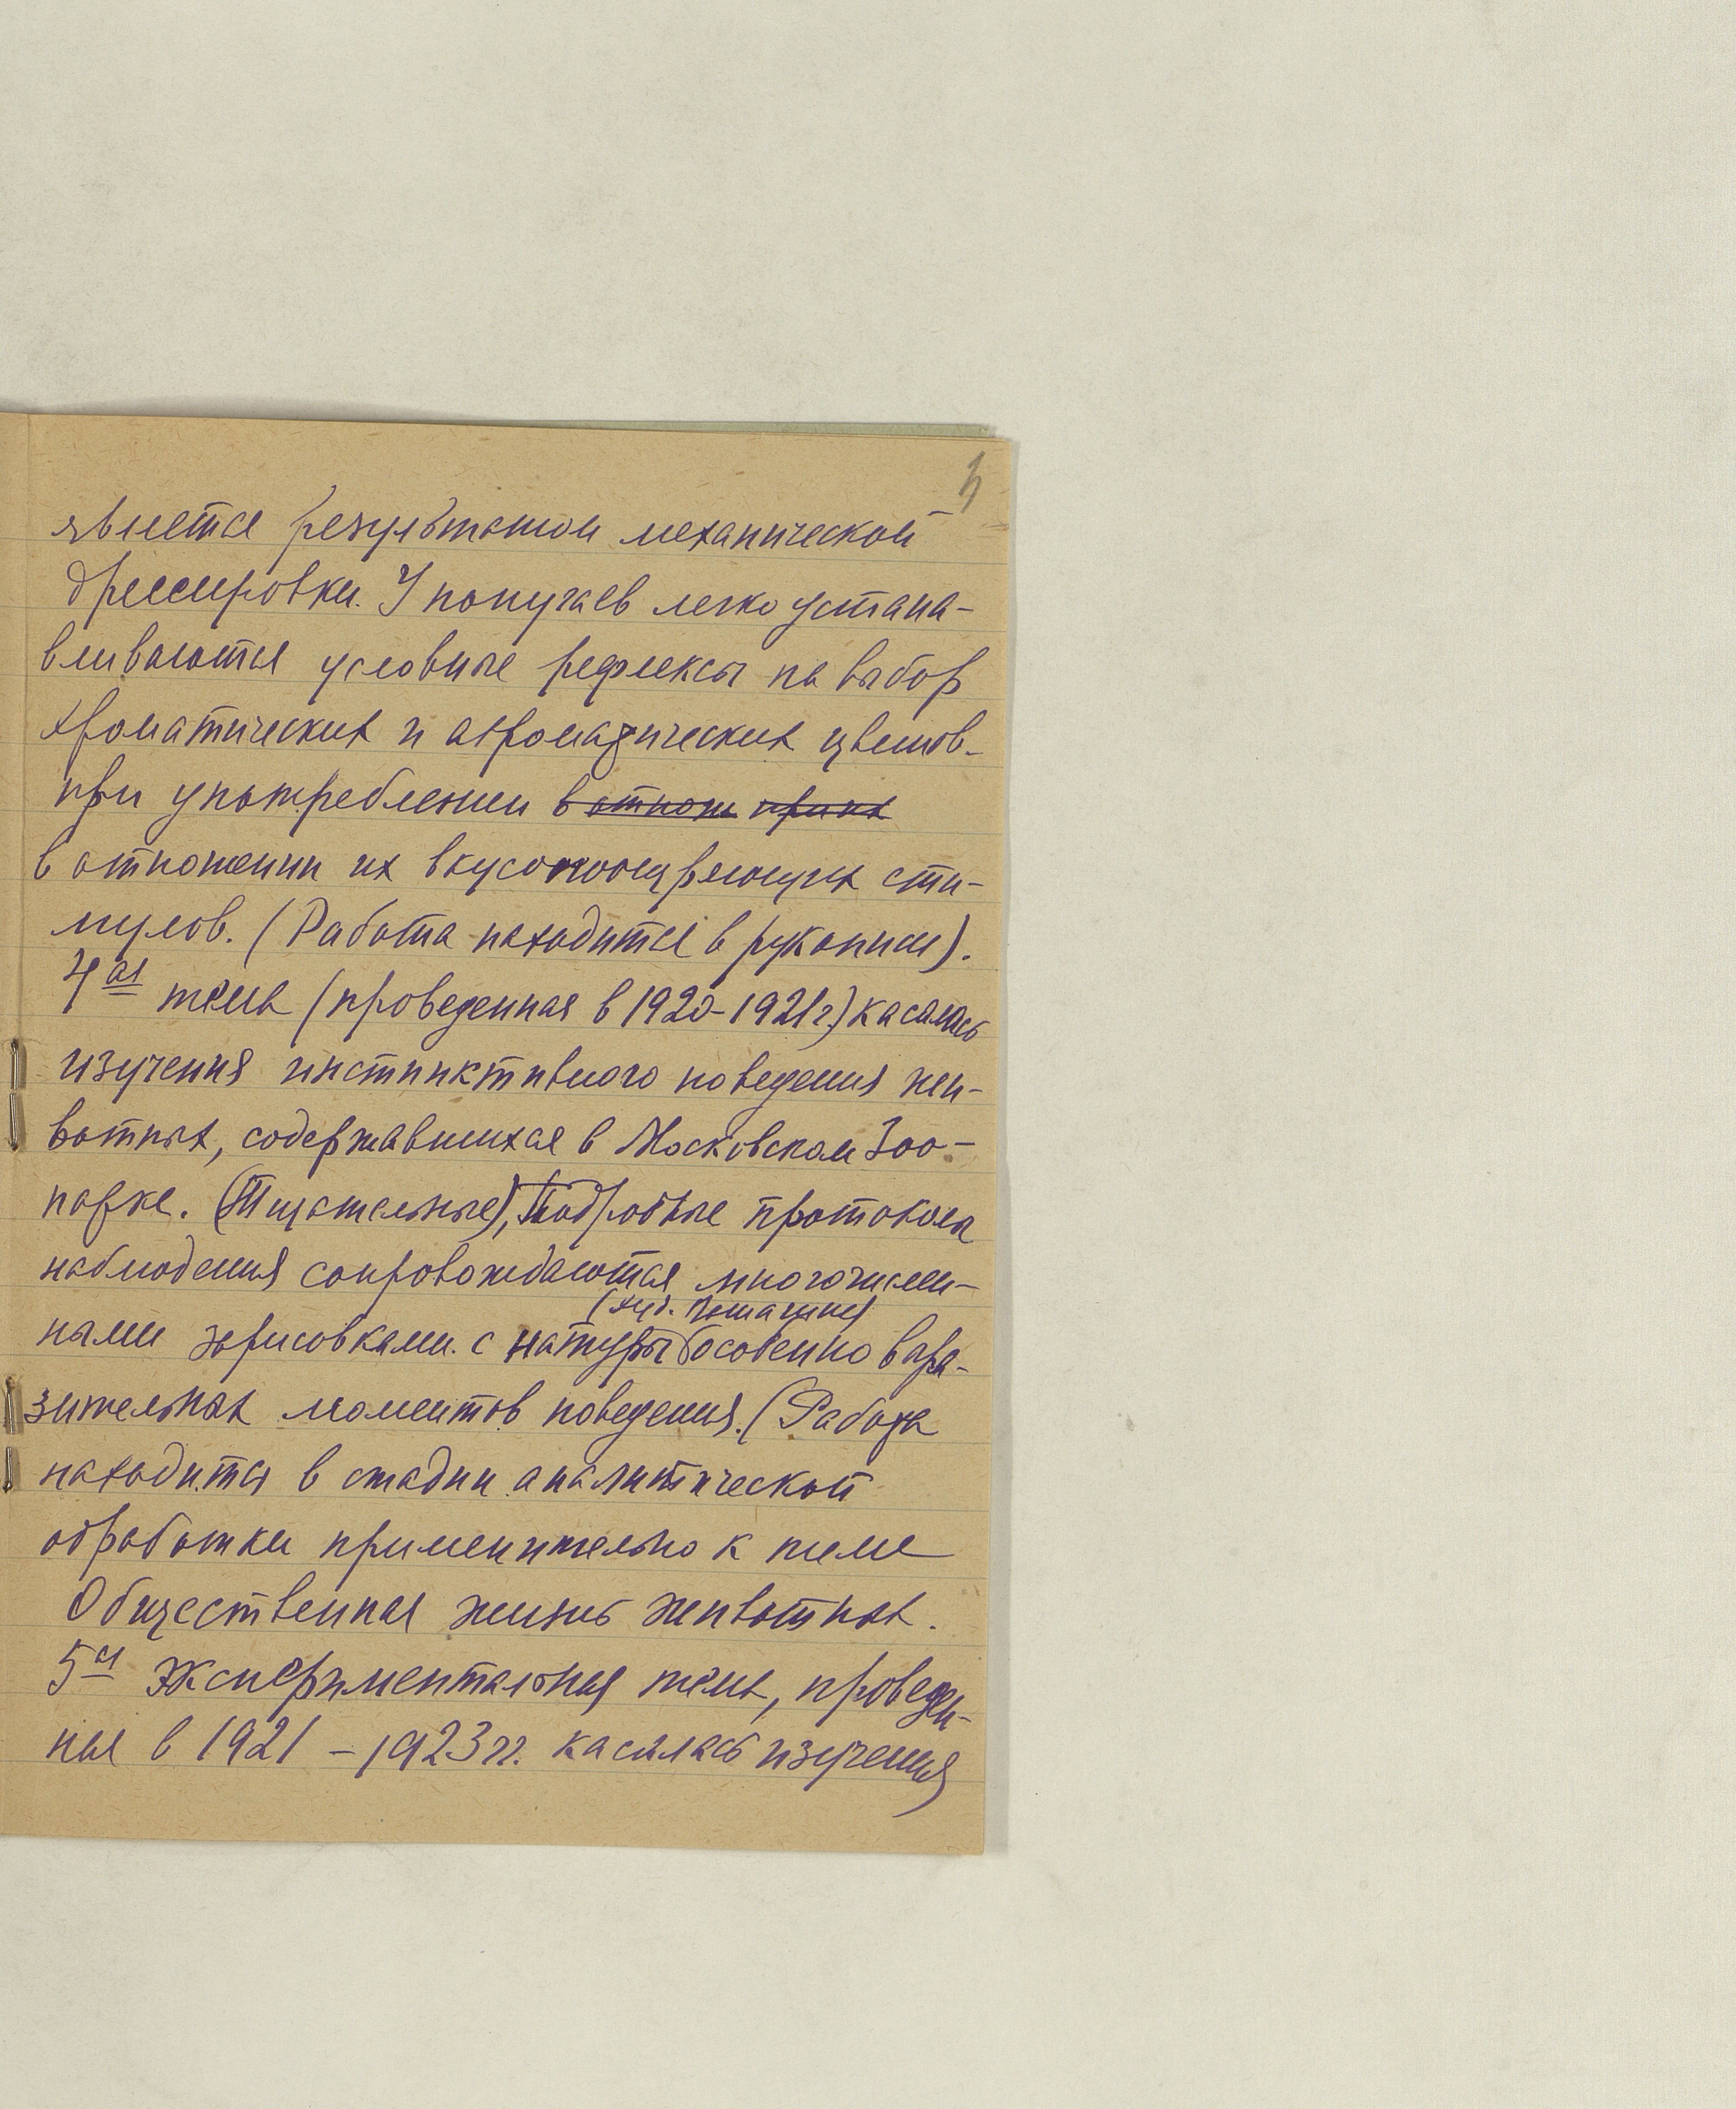 является результатом механической
дрессировки. У попугаев легко устана-
вливаются условные рефлексы на выбор
хроматических и ахроматических цветов-
при употреблении в отнош
в отношении их вкусопоощряющих сти-
мулов. (Работа находится в рукописи).
4ая тема (проведенная в 1920-1921г.) касалась
изучения инстинктивного поведения жи-
вотных, содержавшихся в Московском Зоо-
парке. (Тщательные), подробные протоколы
наблюдения сопровождаются многочислен-
(худ. Ватагина)
ными зарисовками с натуры особенно выра-
зительных моментов поведения. (Работа
находится в стадии аналитической
обработки применительно к теме
Общественная жизнь животных.
5ая экспериментальная тема, проведен-
ная в 1921 – 1923 гг. касалась изучения